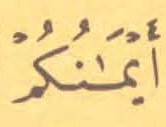 أَيْمَٰنُكُمْ